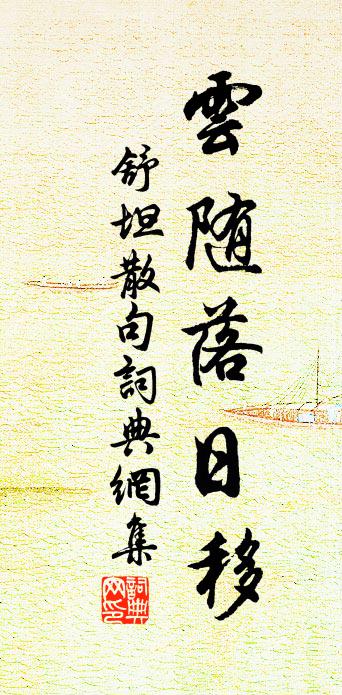 雲随落日移
舒坦散句詞典網集
詞典网印